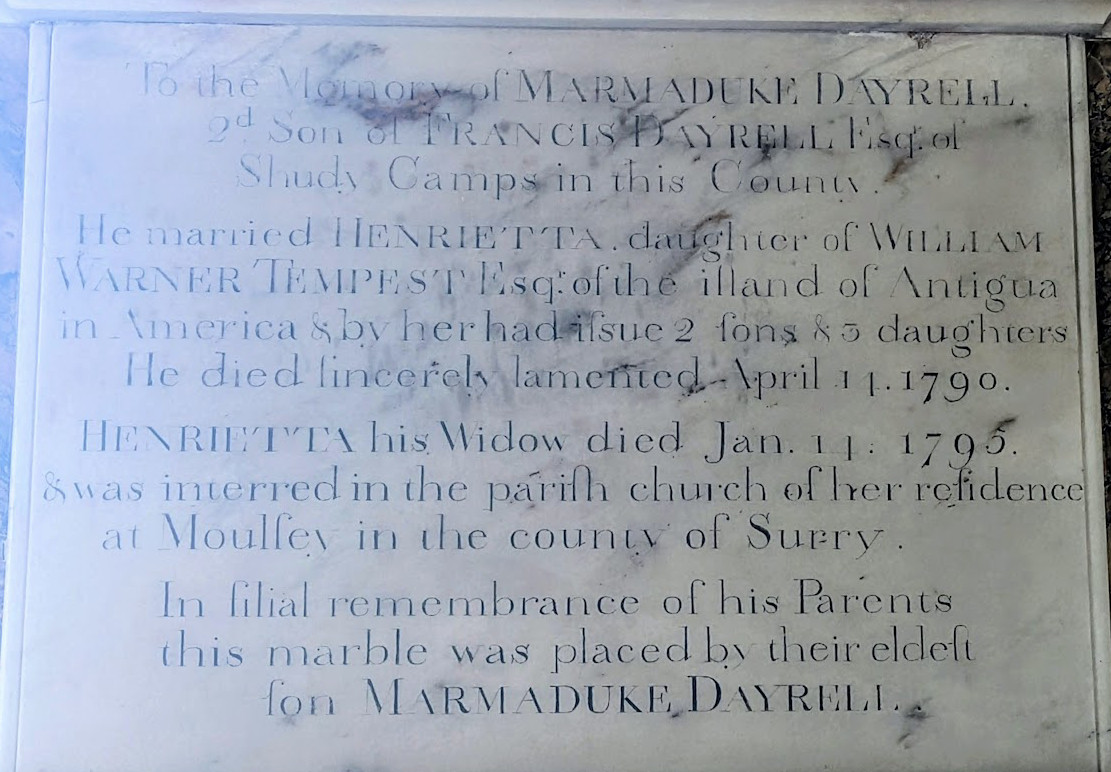 To the Memory of MARMADUKE DAYRELL.
2d. Son of FRANCIS DAYRELL Esqr. of
Shudy Camps in this County.
He married HENRIETTA, daughter of WILLIAM
WARNER TEMPEST Esqr. of the iſland of Antigua
in America & by her had iſsue 2 ſons & 3 daughters
He died ſincerely lamented April 14. 1790.
HENRIETTA his Widow died Jan. 14: 1795.
& was interred in the pariſh church of her reſidence
at Moulſey in the county of Surry.
In filial remembrance of his Parents
this marble was placed by their eldeſt
ſon MARMADUKE DAYRELL.